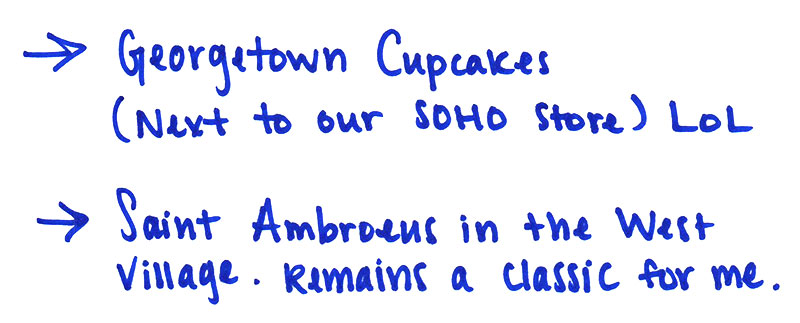 → Georgetown Cupcakes
(Next to our SOHO store) LOL
→ Saint Ambroeus in the West
Village. Remains a classic for me.